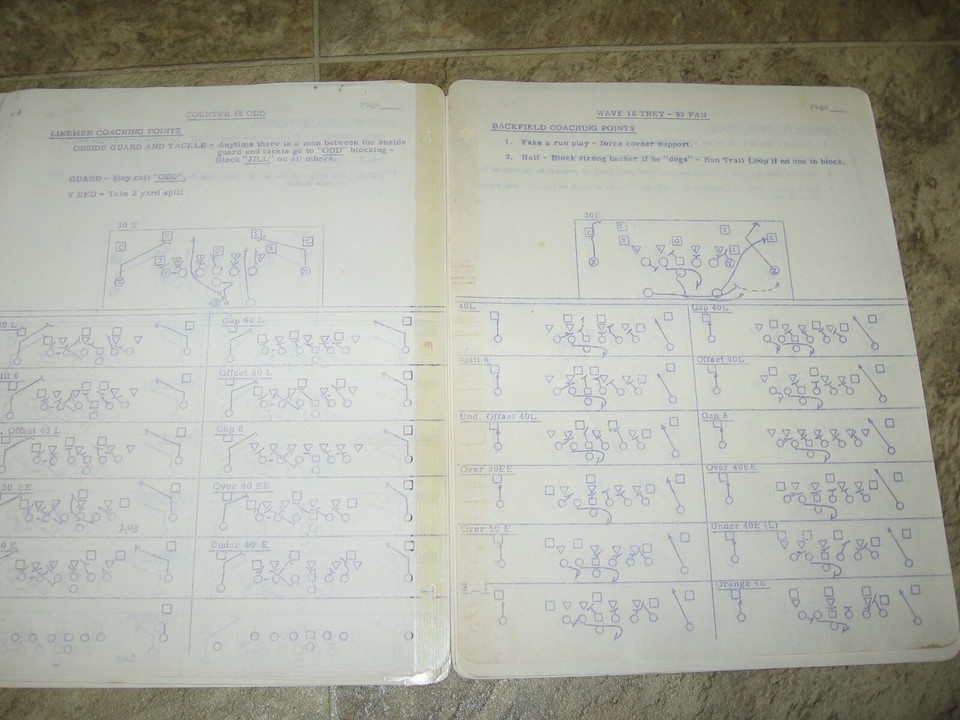 Page
COUNTER 55 ODD
LINEMEN COACHING POINTS
ONSIDE GUARD AND TACKLE - Anytime there is a man between the onside
guard and tackle go to "ODD" blocking -
Block "JILL" on all others.
GUARD - May call "ODD".
Y END - Take 2 yard split
30 E
Gap 40 L
Offset 40 L
Offset 40 L
Gap 8
Over 40 EE
Under 40 E
Page
WAVE 18 TREY - 93 FAN
BACKFIELD COACHING POINTS
1. Fake a run play - force corner support.
2. Half - Block strong backer if he "dogs" - Run Trail Loop if no one to block.
30E
40L
Gap 40L
Split 6
Offset 40L
Und. Offset 40L
Gap 8
Over 30EE
Over 40EE
Over 50 E
Under 40E (L)
Orange 4E